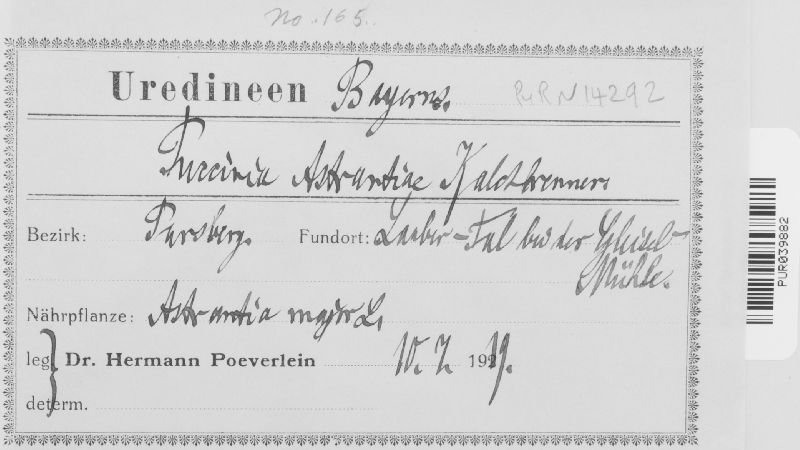 No. 165.
Uredineen Bayerns.
PUR N14292
Puccinia Astrantiae Kalchbrenner
Bezirk: Parsberg. Fundort: Laaber-Tal bei der
Mühle.
Nährpflanze: Astrantia major L.
leg. Dr. Hermann Poeverlein 10. 7. 1919.
determ.
PUR039882